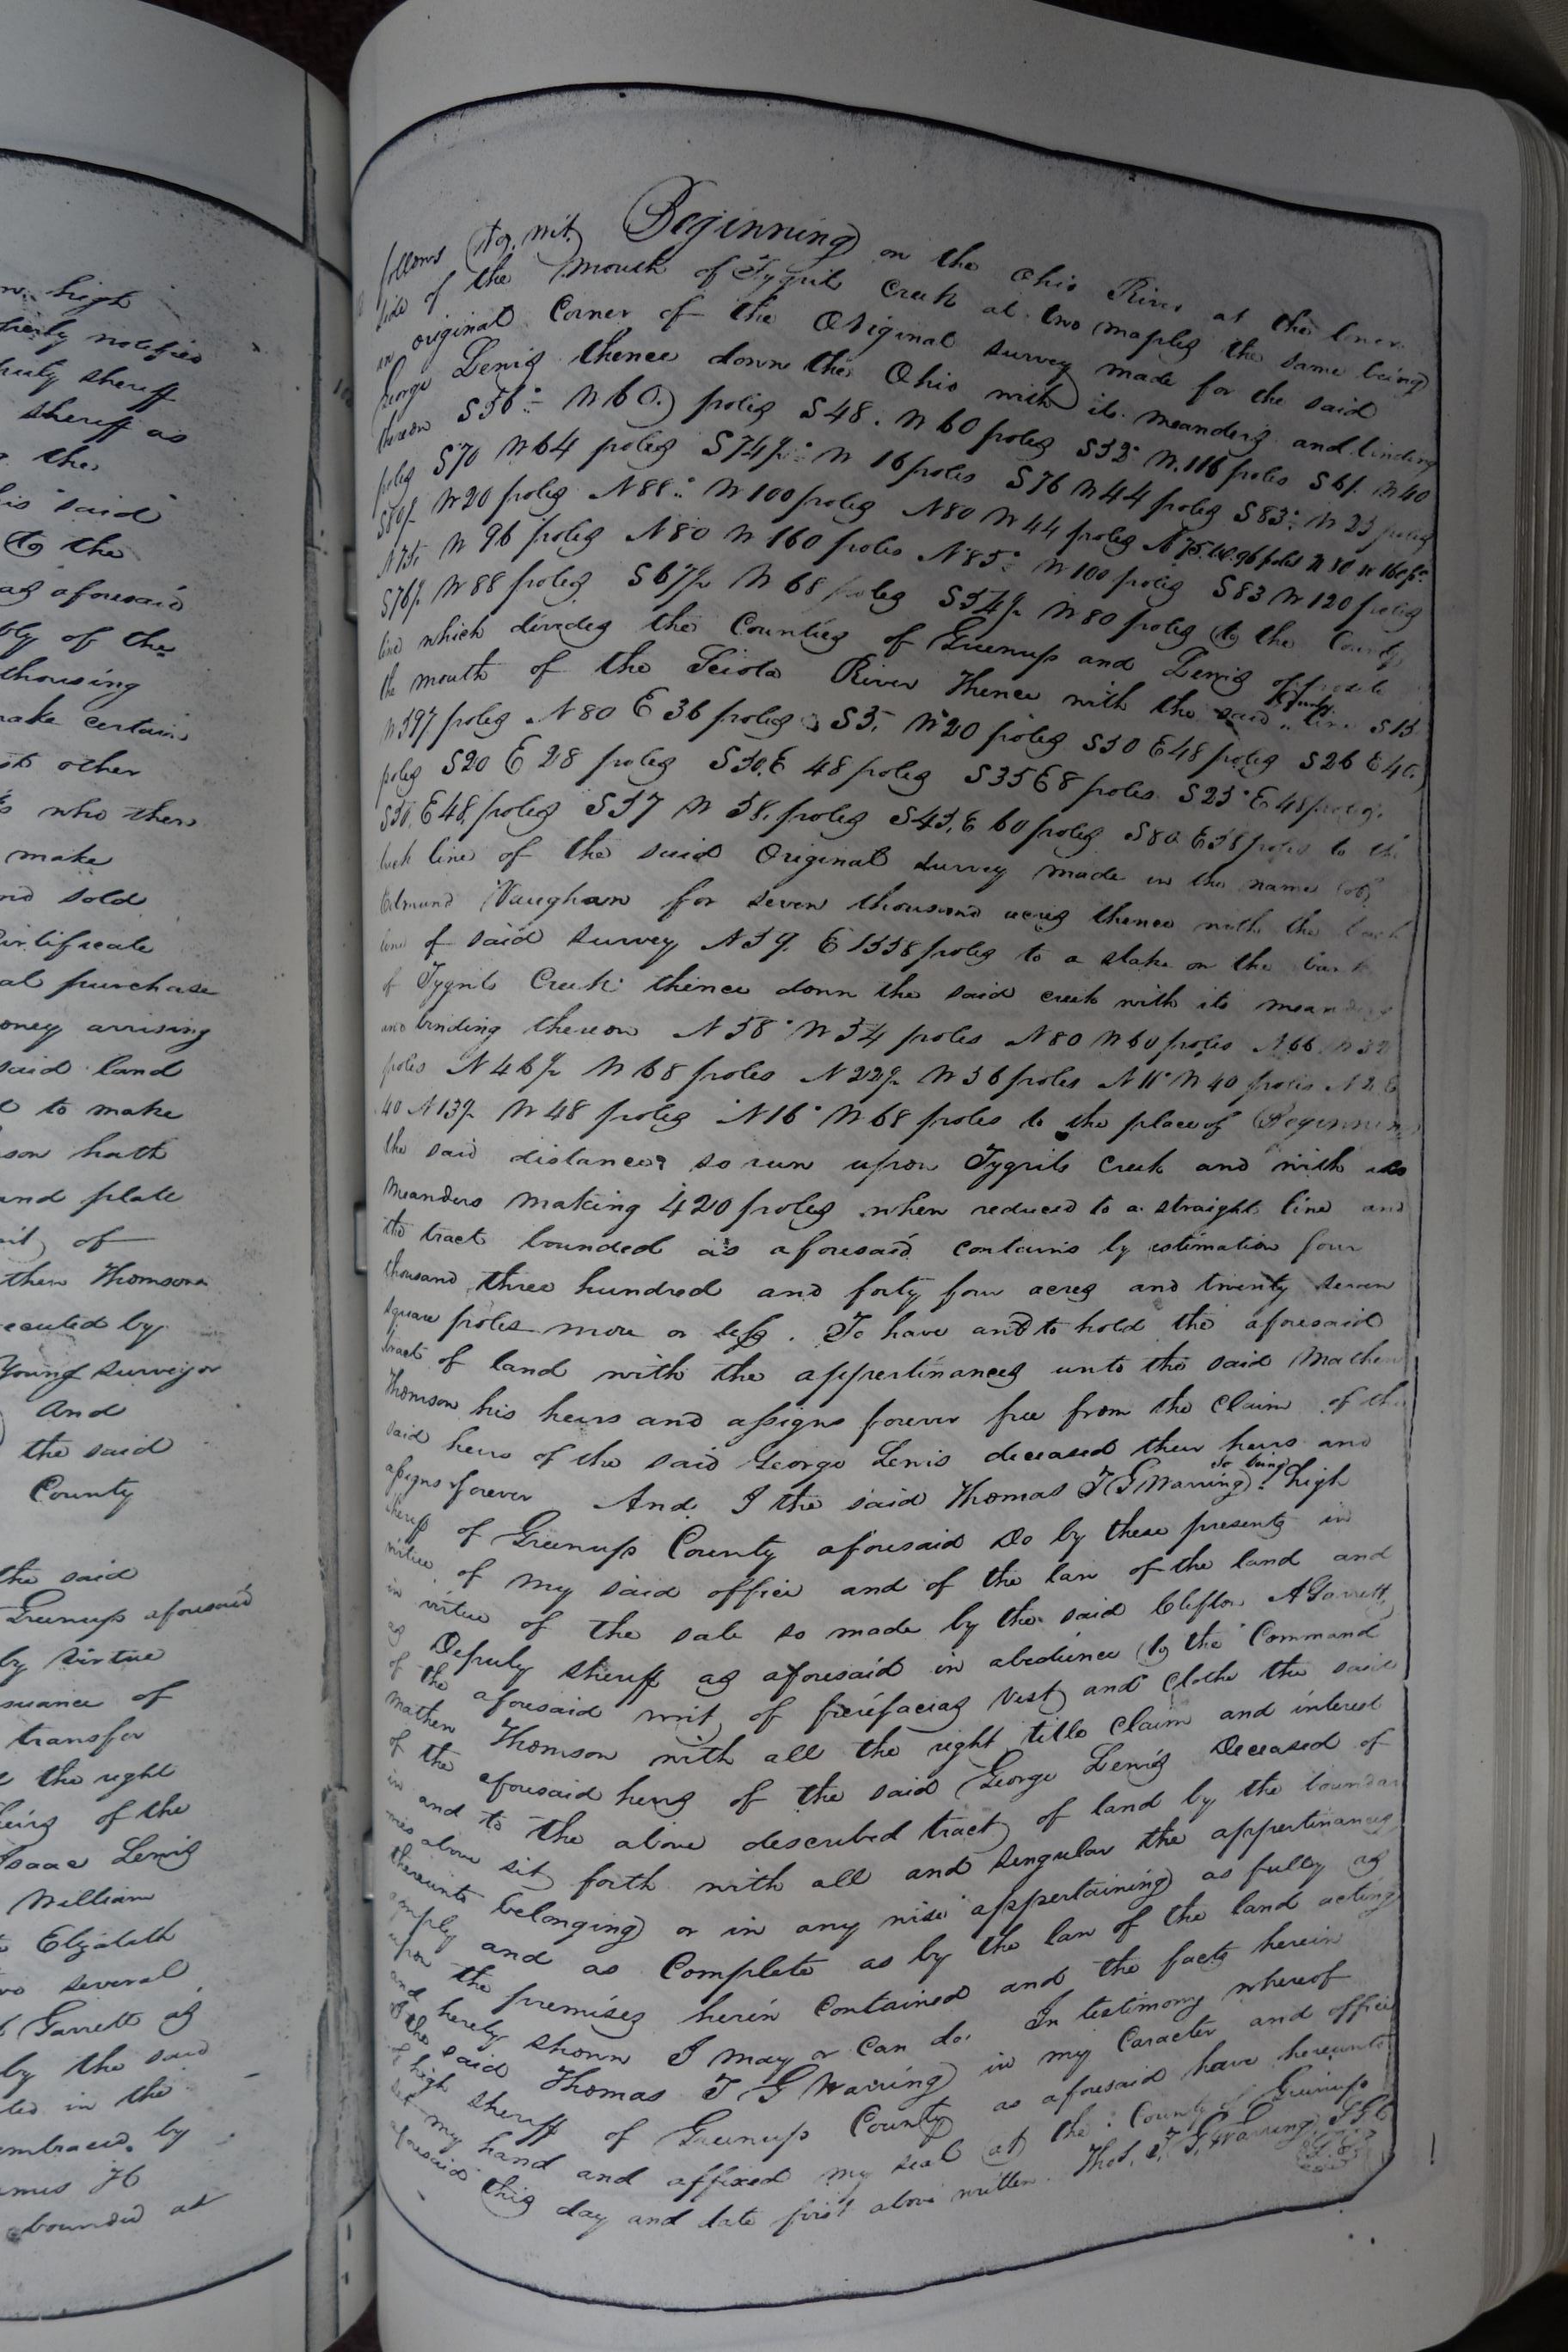 n. high
perly notified
puty sheriff
sheriff as
the
his said
to the
as aforesaid
bly of the
thousing
make certain
other
s who then
make
and sold
Certificate
al purchase
oney arrising
said land
to make
son hath
and plate
of
then Thomson
ecuted by
Young surveyor
And
the said
County
the said
Greenup aforesaid
by virtue
suance of
transfer
the right
heirs of the
Isaac Lewis
William
Elizabeth
several
Garrett as
by the said
ted in the
embraced by
James H
bounded at
follows (to, wit,) Beginning on the Ohio River at the lower
side of the mouth of Tygrits Creek at two maples the same being
an original Corner of the Original survey made for the said
George Lewis thence down the Ohio with its meanders and binding
thereon S56° W 60 poles S48. W 60 poles S52° W 116 poles S61. W 40
poles S70 W 64 poles S74½° W 16 poles S76 W 44 poles S83° W 25 poles
S80½ W 20 poles N88° W 100 poles N80 W 44 poles N75. W. 96 poles N 80 W 160 po
N75. W 96 poles N80 W 160 poles N85° W 100 poles S83 W 120 poles
S76½ W 88 poles S67½ W 68 poles S54½ W 80 poles to the County
line which divides the Counties of Greenup and Lewis opposite
the mouth of the Sciota River Thence with the said County line S15
W 597 poles N80 E 36 poles S5. W 20 poles S50 E 48 poles S26 E 40
poles S20 E 28 poles S50. E 48 poles S35 E 8 poles S25° E 48 poles
S50. E 48. poles S57 W 58. poles S45. E 60 poles S80 E 58 poles to the
back line of the said Original survey made in the name of
Edmund Vaughan for seven thousand acres thence with the back
line of said survey N59. E 1558 poles to a stake on the bank
of Tygrits Creek thence down the said creek with its meanders
and binding thereon N58° W 54 poles N80 W 60 poles N66 W 32
poles N46½ W 68 poles N22½ W 56 poles N11° W 40 poles N2 E
40 N13½ W 48 poles N16° W 68 poles to the place of Beginning
the said distances so run upon Tygrits Creek and with its
meanders making 420 poles when reduced to a straight line and
the tract bounded as aforesaid contains by estimation four
thousand three hundred and forty four acres and twenty seven
square poles more or less. To have and to hold the aforesaid
tract of land with the appertinances unto the said Mathew
Thomson his heirs and assigns forever free from the claim of the
said heirs of the said George Lewis deceased their heirs and
assigns forever And I the said Thomas T G Warring so being high
sheriff of Greenup County aforesaid Do by these presents in
virtue of my said office and of the law of the land and
in virtue of the sale so made by the said Clifton A Garrett
as Deputy sheriff as aforesaid in abedience to the Command
of the aforesaid writ of fierefacias Vest and Clothe the said
Mathew Thomson with all the right title Claim and interest
of the aforesaid heirs of the said George Lewis Deceased of
in and to the above described tract of land by the boundar
ries above sit forth with all and singular the appertinances
thereunto belonging or in any wise appertaining as fully as
amply and as Complete as by the law of the land acting
upon the premises herein Contained and the facts herein
and hereby shown I may or can do. In testimony whereof
I the said Thomas T G Warring in my Caracter and office
of high sheriff of Greenup County as aforesaid have hereunto
set my hand and affixed my seal at the County of Greenup
aforesaid this day and date first above written. Thos. T. G. Warring S G C